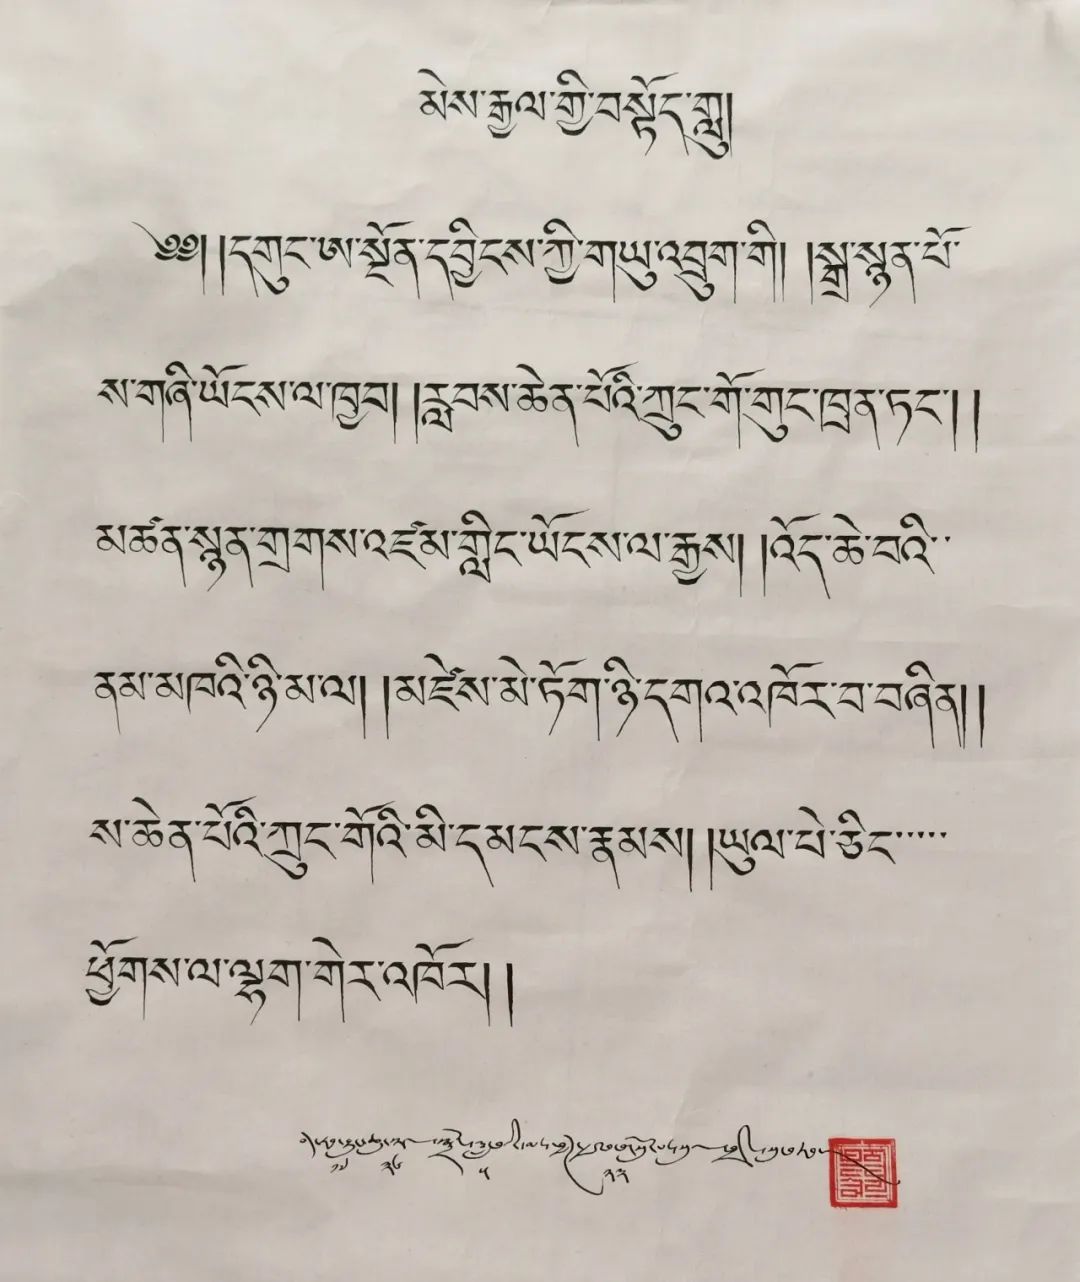 མེས་རྒྱལ་གྱི་བསྟོད་གླུ།
༄༅། །དགུང་ཨ་སྔོན་དབྱིངས་ཀྱི་གཡུ་འབྲུག་གི། །སྒྲ་སྙན་པོ་
ས་གཞི་ཡོངས་ལ་ཁྱབ། །རླབས་ཆེན་པོའི་ཀྲུང་གོ་གུང་ཁྲན་ཏང་། །
མཚན་སྙན་གྲགས་འཛམ་གླིང་ཡོངས་ལ་རྒྱས། །འོད་ཆེ་བའི་་
ནམ་མཁའི་ཉི་མ་ལ། །མཛེས་མེ་ཏོག་ཉི་དགའ་འཁོར་བ་བཞིན། །
ས་ཆེན་པོའི་ཀྲུང་གོའི་མི་དམངས་རྣམས། །ཡུལ་པེ་ཅིང་་་་་་
ཕྱོགས་ལ་ལྷག་གེར་འཁོར། །